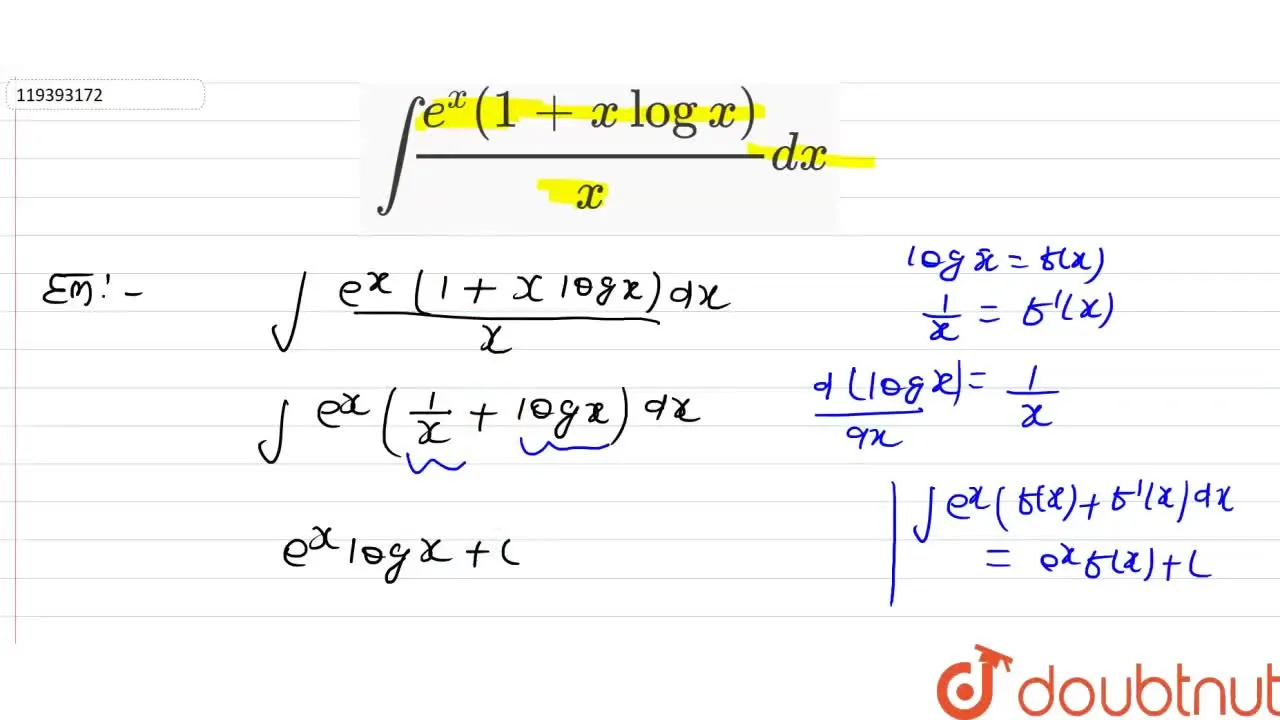 119393172
∫ e^x (1 + x log x) / x dx
∫ e^x (1 + x log x) dx / x
∫ e^x (1/x + log x) dx
e^x log x + C
log x = f(x)
1/x = f'(x)
d(log x)/dx = 1/x
∫ e^x (f(x) + f'(x)) dx
= e^x f(x) + C
doubtnut